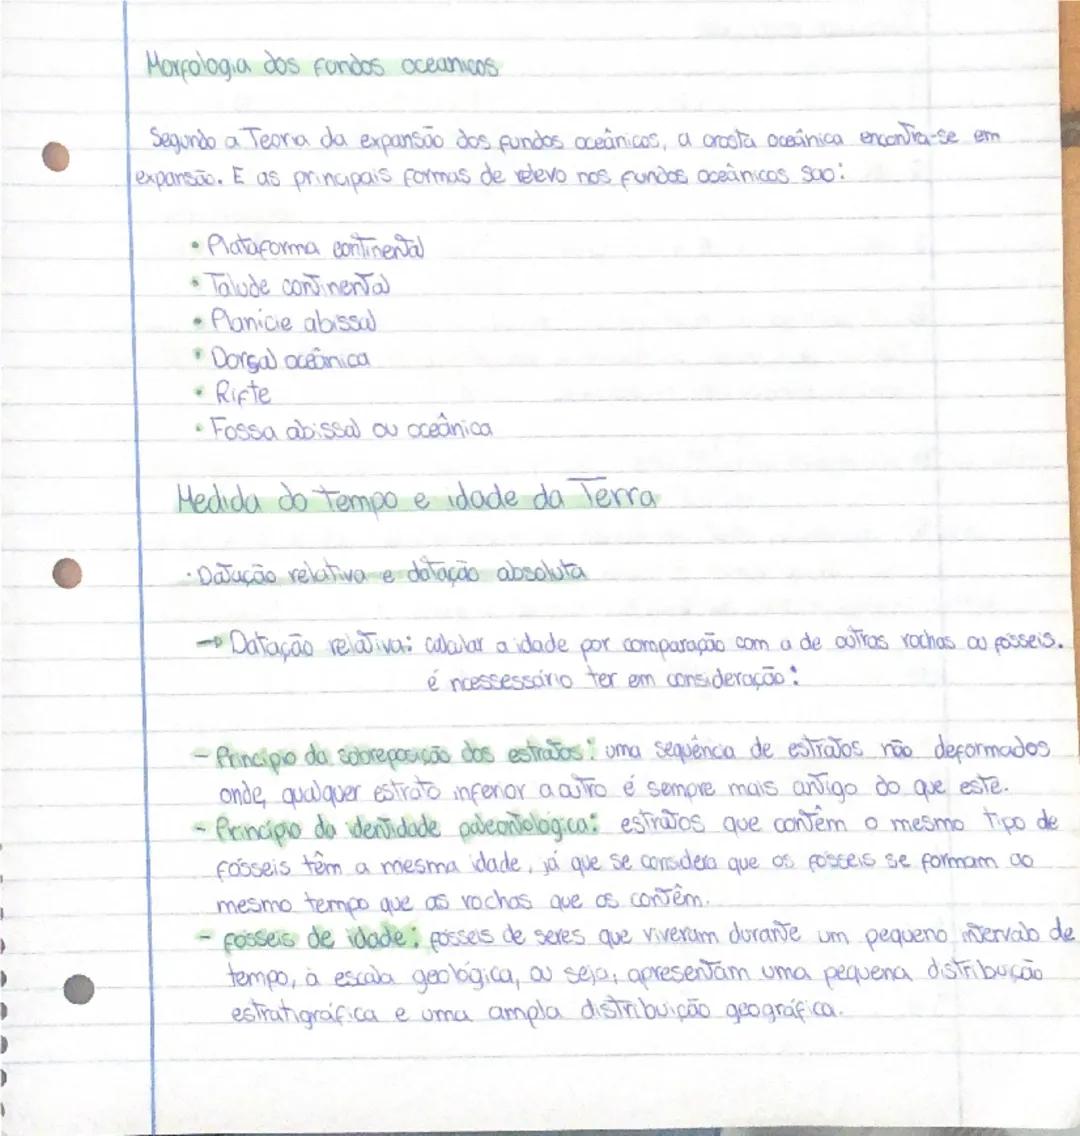 Morfologia dos fundos oceanicos
Segundo a Teoria da expansão dos fundos oceânicos, a crosta oceânica encontra-se em
expansão. E as principais formas de relevo nos fundos oceânicos são:
• Plataforma continental
• Talude continental
• Planície abissal
• Dorsal oceânica
• Rifte
• Fossa abissal ou oceânica
Medida do tempo e idade da Terra
· Datação relativa e datação absoluta
→ Datação relativa: calcular a idade por comparação com a de outras rochas ou fósseis.
é ncessessário ter em consideração:
- Princípio da sobreposição dos estratos: uma sequência de estratos não deformados
onde, qualquer estrato inferior a outro é sempre mais antigo do que este.
- Princípio da identidade paleontológica: estratos que contêm o mesmo tipo de
fósseis têm a mesma idade, já que se considera que os fósseis se formam ao
mesmo tempo que as rochas que os contêm.
- fósseis de idade: fósseis de seres que viveram durante um pequeno intervalo de
tempo, à escala geológica, ou seja, apresentam uma pequena distribuição
estratigráfica e uma ampla distribuição geográfica.